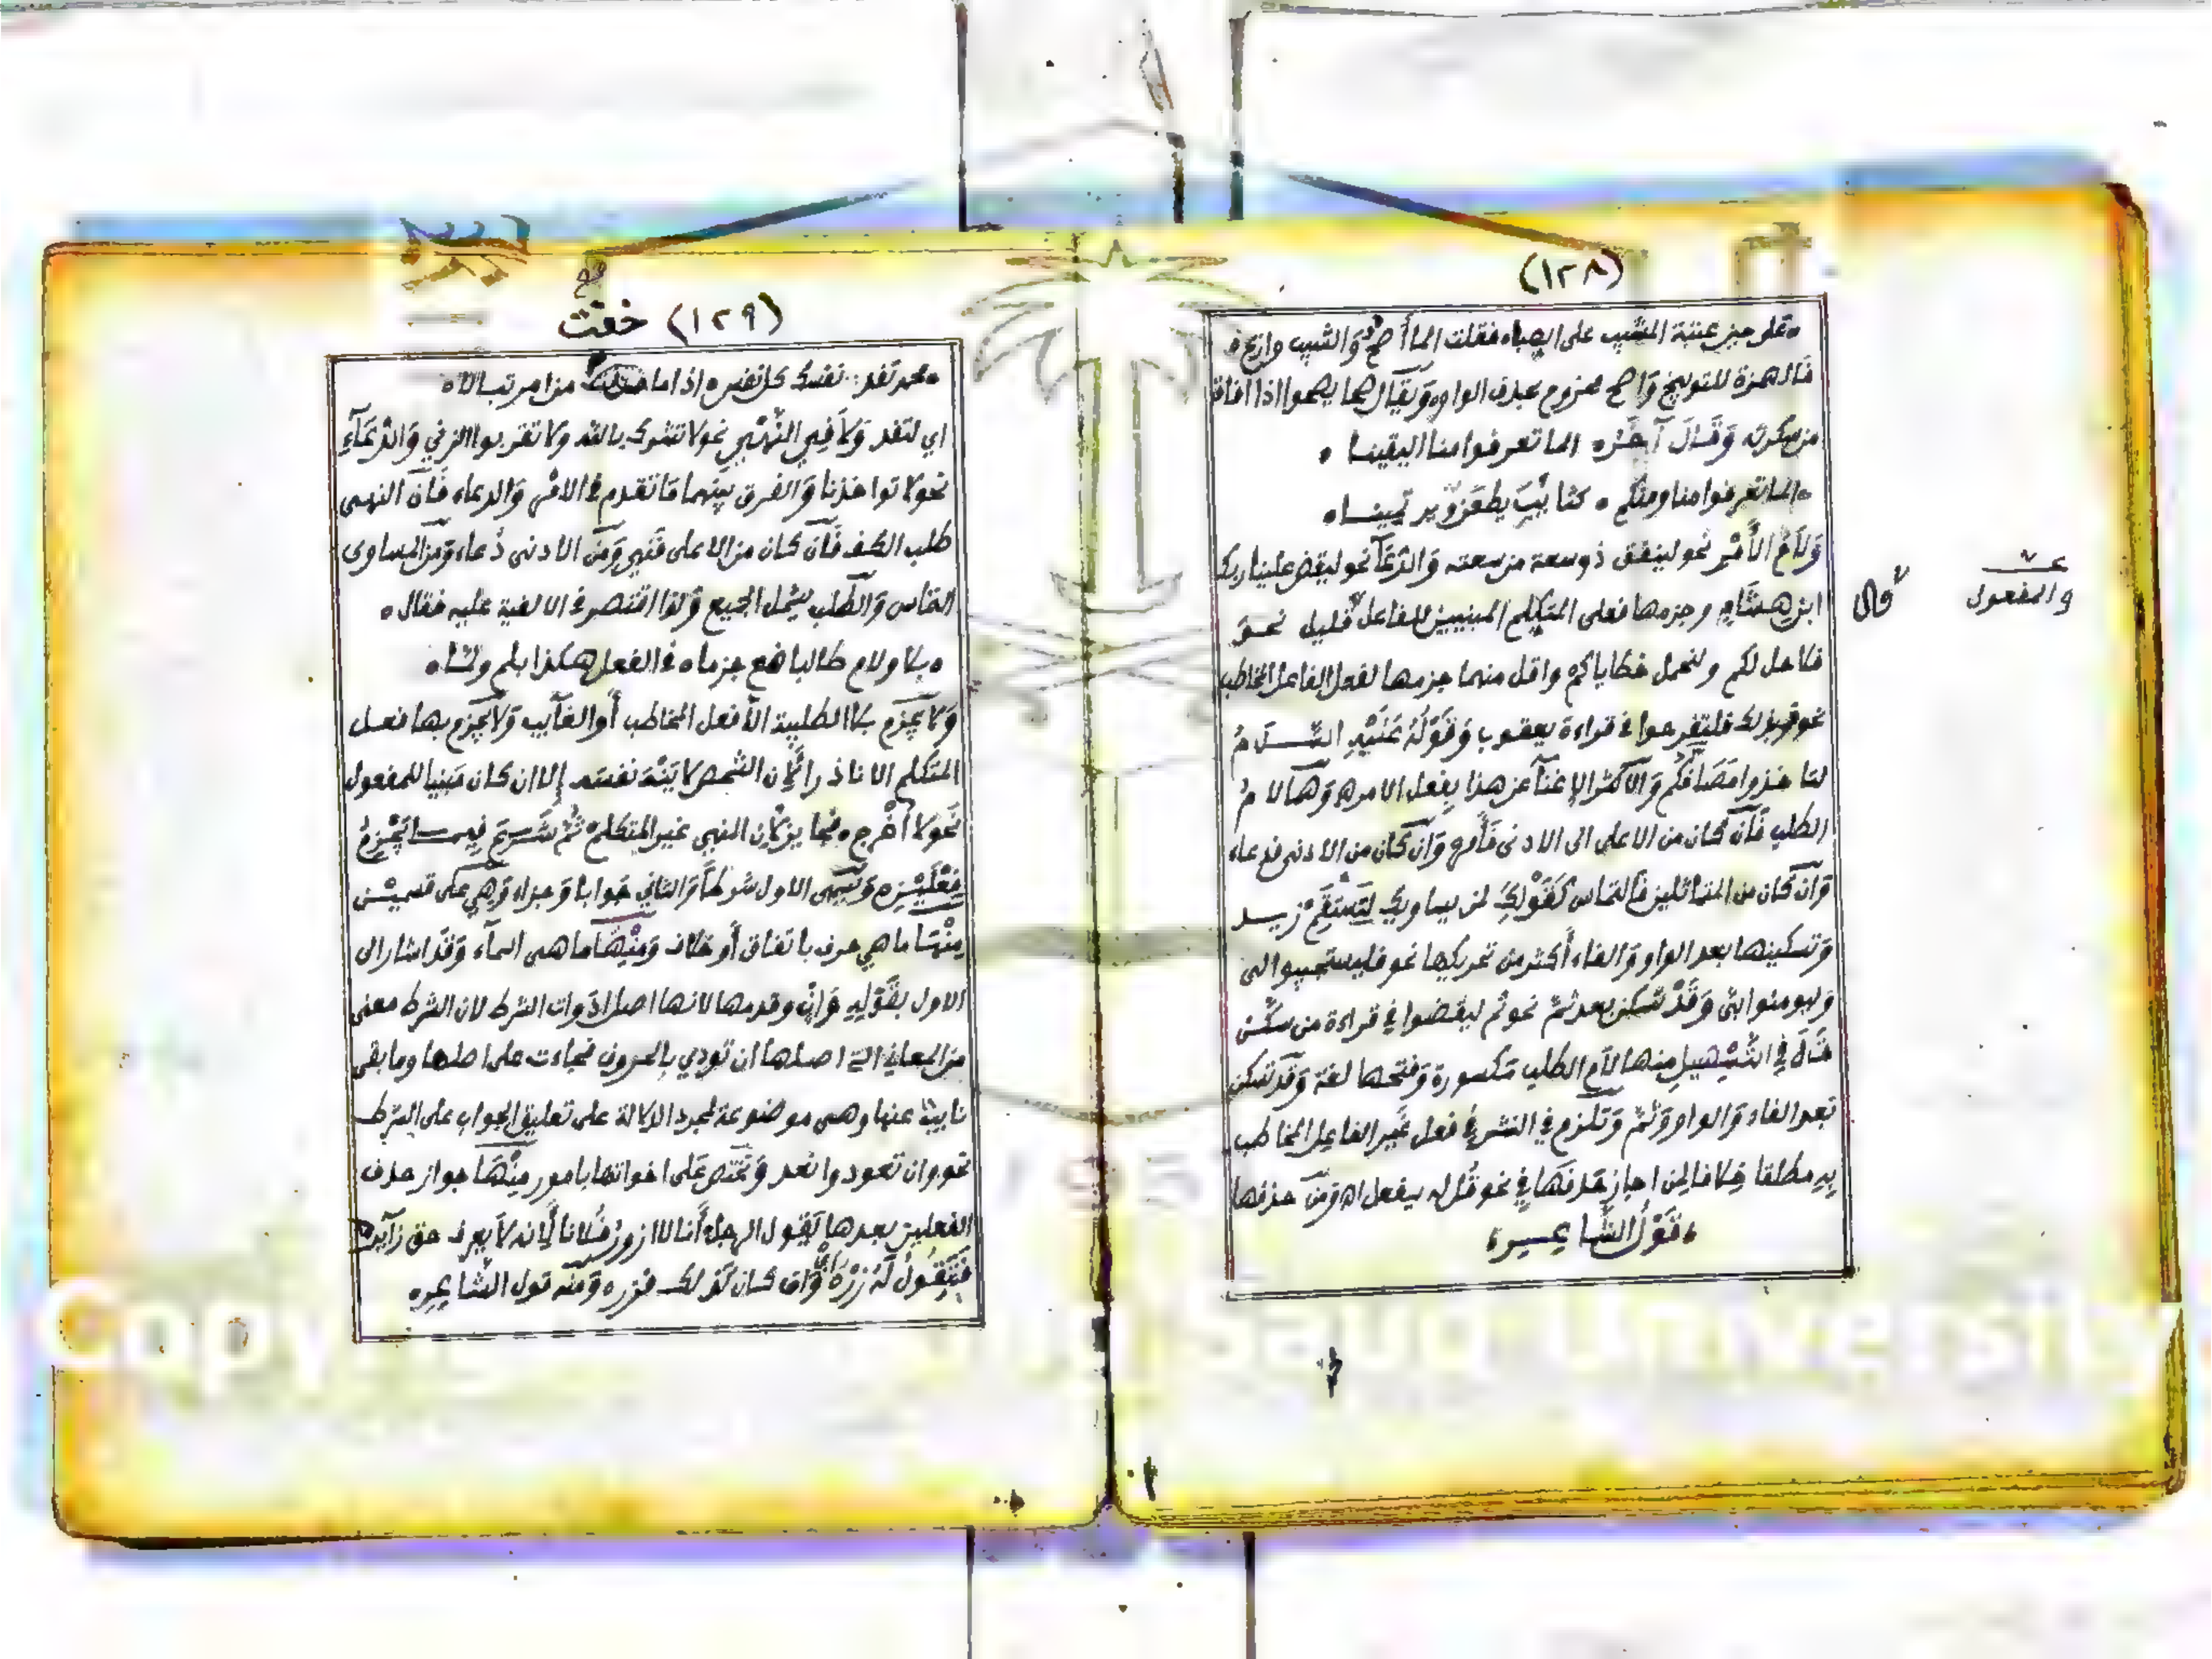 (١٢٨)
على حين عتبة المشيب على الصباء فقلت الما أصح والشيب وازع
فالهمزة للتوبيخ واصح مجزوم بحذف الواو ويقال صحا يصحوا اذا افاق
من سكرته وقال آخر الما تعرفوا منا اليقينا
الما تعرفوا منا ومنكم كتائب يطعن ويرتمينا
ولام الأمر نحو لينفق ذو سعة من سعته والدعآ نحو ليقض علينا ربك
قال
ابن هشام وجزمها فعلى المتكلم المبنيين للفاعل قليل نحو
والمفعول
فلاصل لكم ولنحمل خطاياكم واقل منهما جزمها لفعل الفاعل المخاطب
نحو فبذلك فلتفرحوا في قراءة يعقوب وقوله عليه السلام
لتاخذوا مصافكم والاكثر الاغنآ عن هذا بفعل الامر وهآ لام
الطلب فآن كان من الاعلى الى الادنى فأمر وآن كان من الادنى فدعاء
وآن كان من المتماثلين فالتماس كقولك لمن يساويك ليستقم زيد
وتسكينها بعد الواو والفاء أكثر من تحريكها نحو فليستجيبوا لى
وليومنوا بى وقد تسكن بعد ثم نحو ثم ليقضوا في قراءة من سكن
قال في التسهيل منها لام الطلب مكسورة وفتحها لغة وقد تسكن
بعد الفاء والواو وثم وتلزم في النثر في فعل غير الفاعل المخاطب
به مطلقا خلافا لمن اجاز حذفها في نحو قل له يفعل اه ومن حذفها
قول الشاعر
(١٢٩) خفت
محمد تفد نفسك كل نفس اذا ما من امر تبالا
اي لتفد ولا في النهي نحو لا تشرك بالله ولا تقربوا الزنى والدعآء
نحو لا تواخذنا والفرق بينهما ما تقدم في الامر والدعاء فآن النهى
طلب الكف فآن كان من الاعلى فنهي ومن الادنى دعاء ومن المساوى
التماس والطلب يشمل الجميع ولذا اقتصر في الالفية عليه فقال
بلا ولام طالبا ضع جزما في الفعل هكذا بلم ولما
ولا يجزم بلا الطلبية الا فعل المخاطب أو الغآيب ولا يجزم بها فعل
المتكلم الا نادرا لان الشخص لا ينه نفسه إلا ان كان مبنيا للمفعول
نحو لا أخرج فجايز لان النهي غير المتكلم ثم شرع فيما يجزم
فعلين ويسمى الاول شرطا والثاني جوابا وجزاء وهي على قسمين
منها ما هي حرف باتفاق أو خلاف ومنها ما هى اسمآء وقد اشار الى
الاول بقوله وإن وقدمها لانها اصل ادوات الشرط لان الشرط معنى
من المعاني التي اصلها ان تودي بالحروف فجاءت على اصلها وما بقى
نايبا عنها وهى موضوعة لمجرد الدلالة على تعليق الجواب على الشرط
نحو وان تعودوا نعد وتختص على اخواتها بامور منها جواز حذف
الفعلين بعدها يقول الرجل أنا لا ازور فلانا لانه لا يعرف حق زآيره
فتقول له زره وان كان كذلك فزره ومنه قول الشاعر